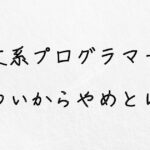 文系プログラマー
ついからやめとい